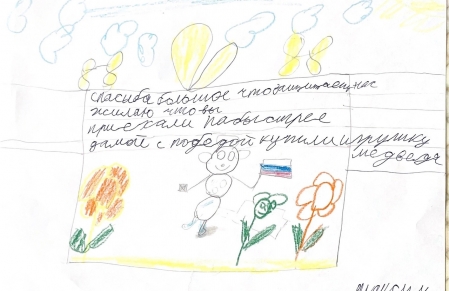 спасиба большое что защищаещ нас
жилаю что вы
приехали пабыстрее
дамой с победой купили игрушку
медведя